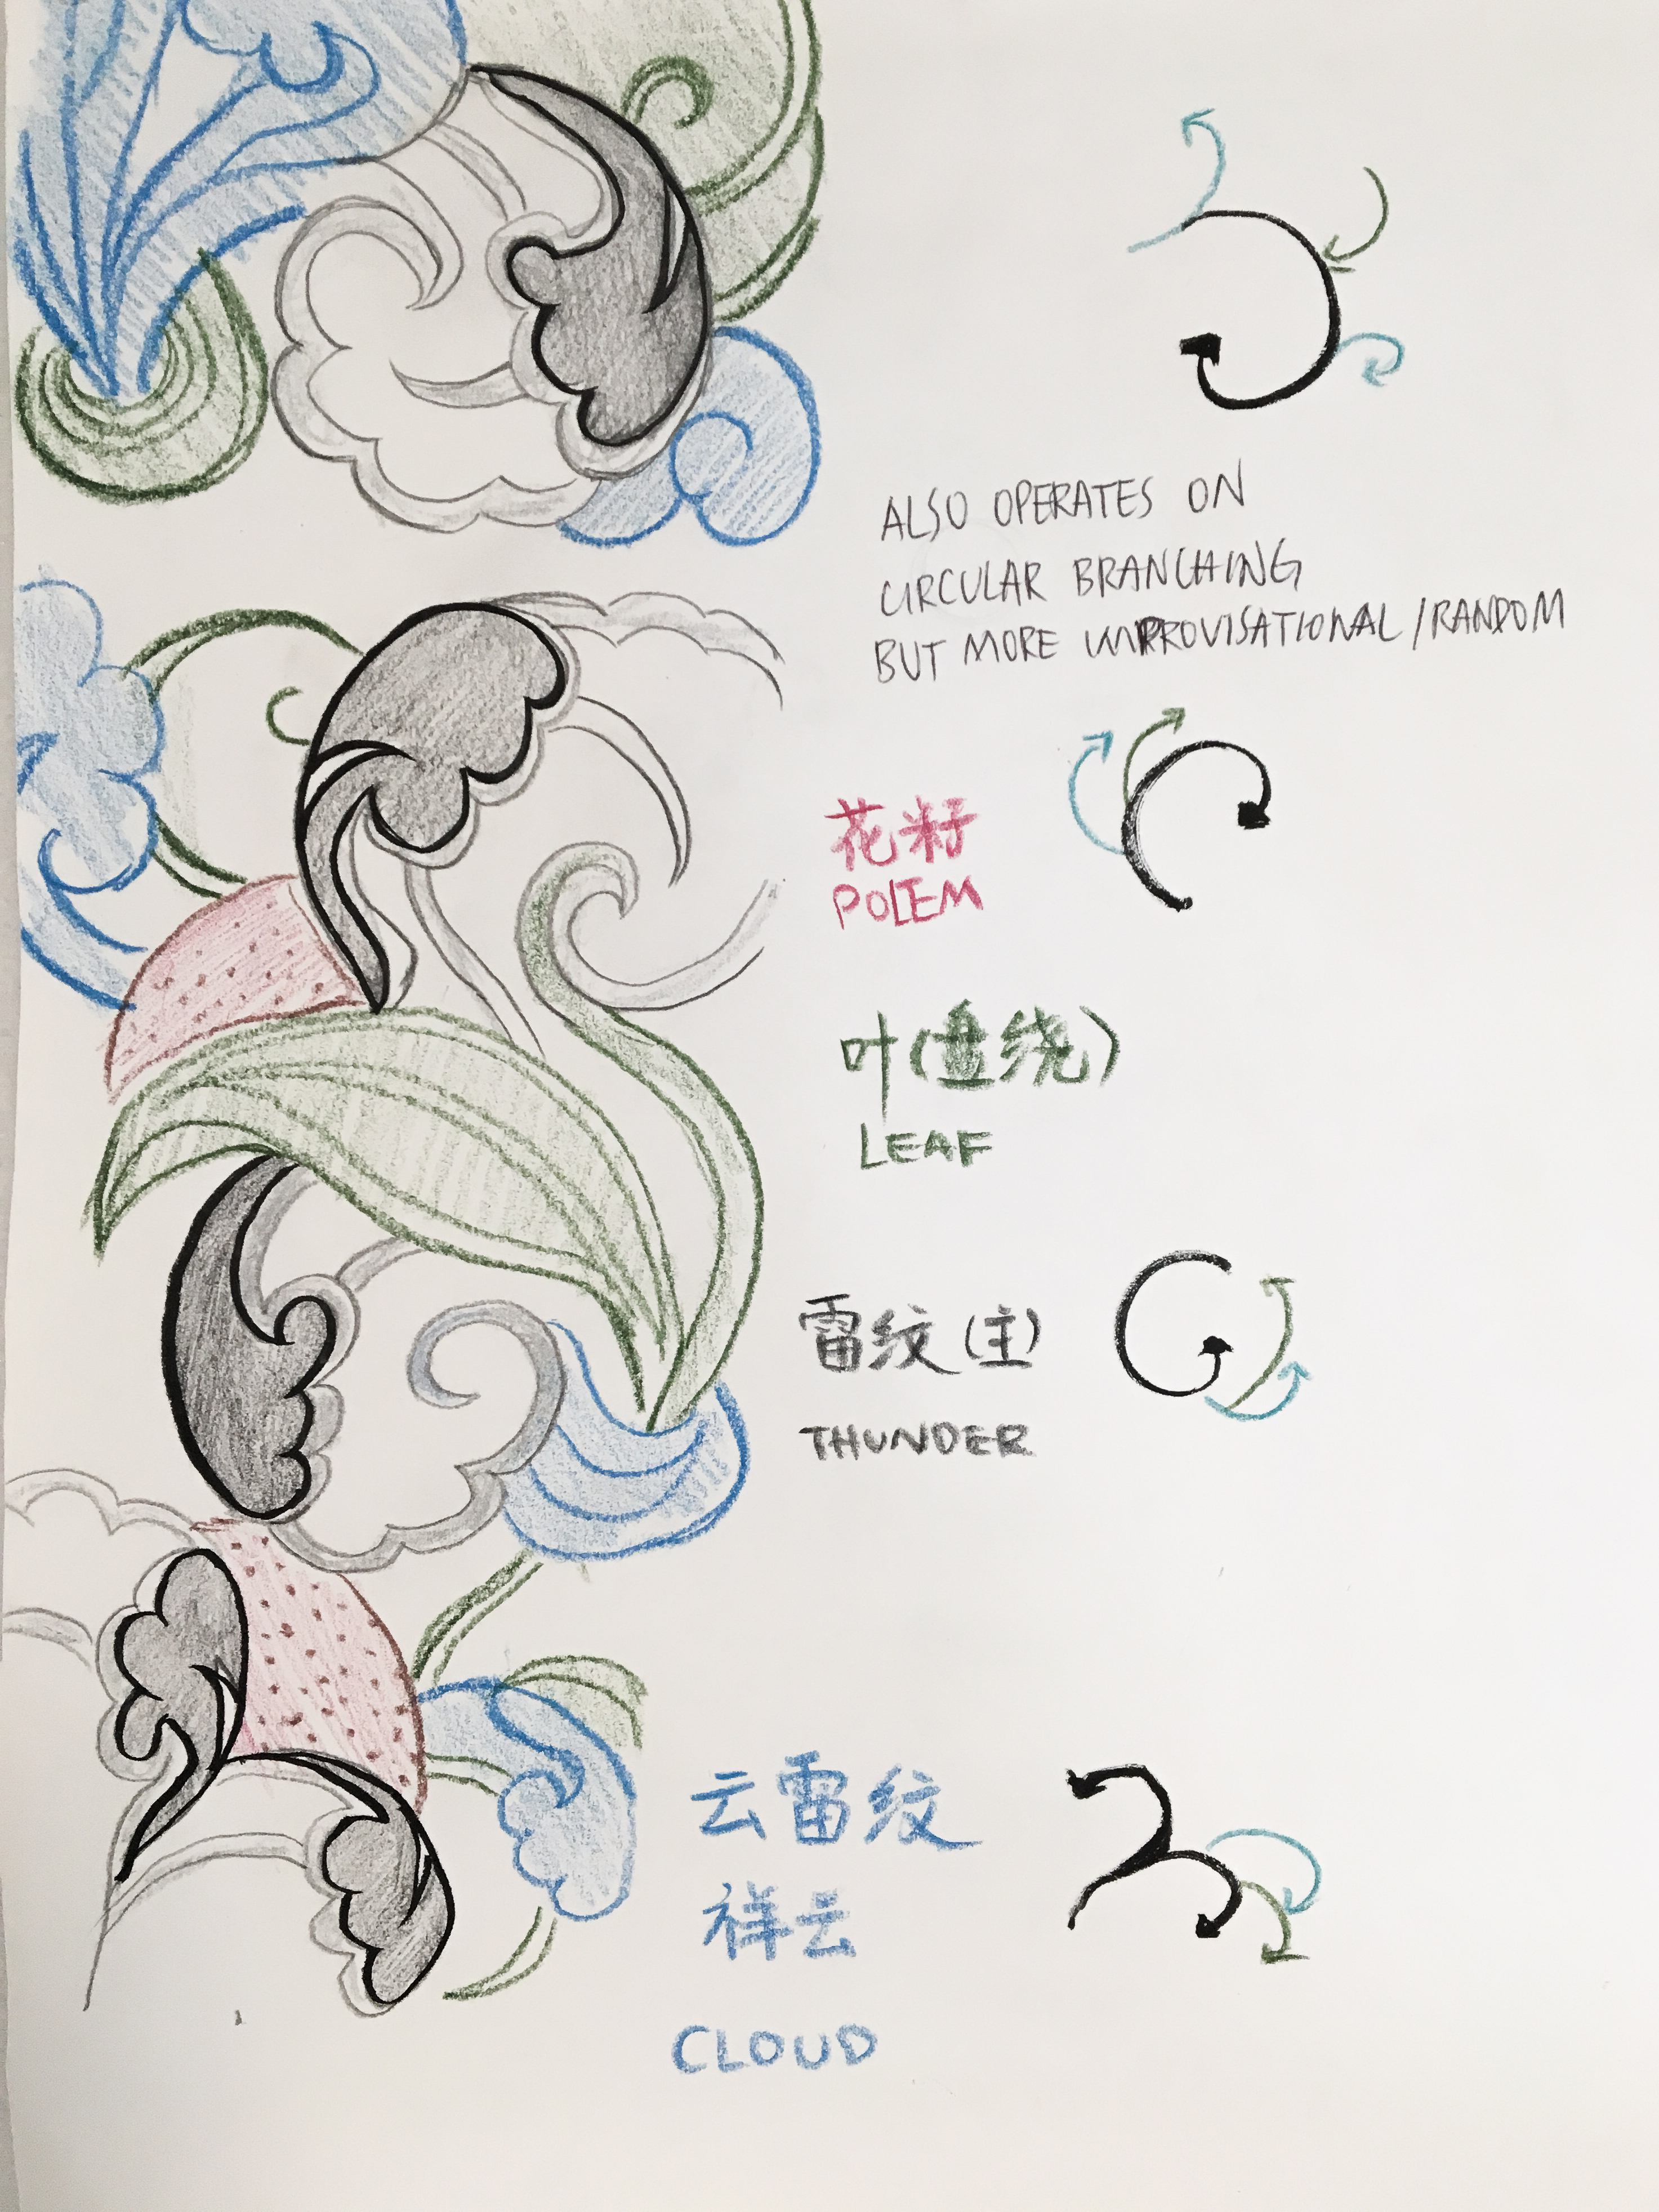 ALSO OPERATES ON
CIRCULAR BRANCHING
BUT MORE IMPROVISATIONAL/RANDOM
花籽
POLEM
叶(盘绕)
LEAF
雷纹(主)
THUNDER
云雷纹
祥云
CLOUD